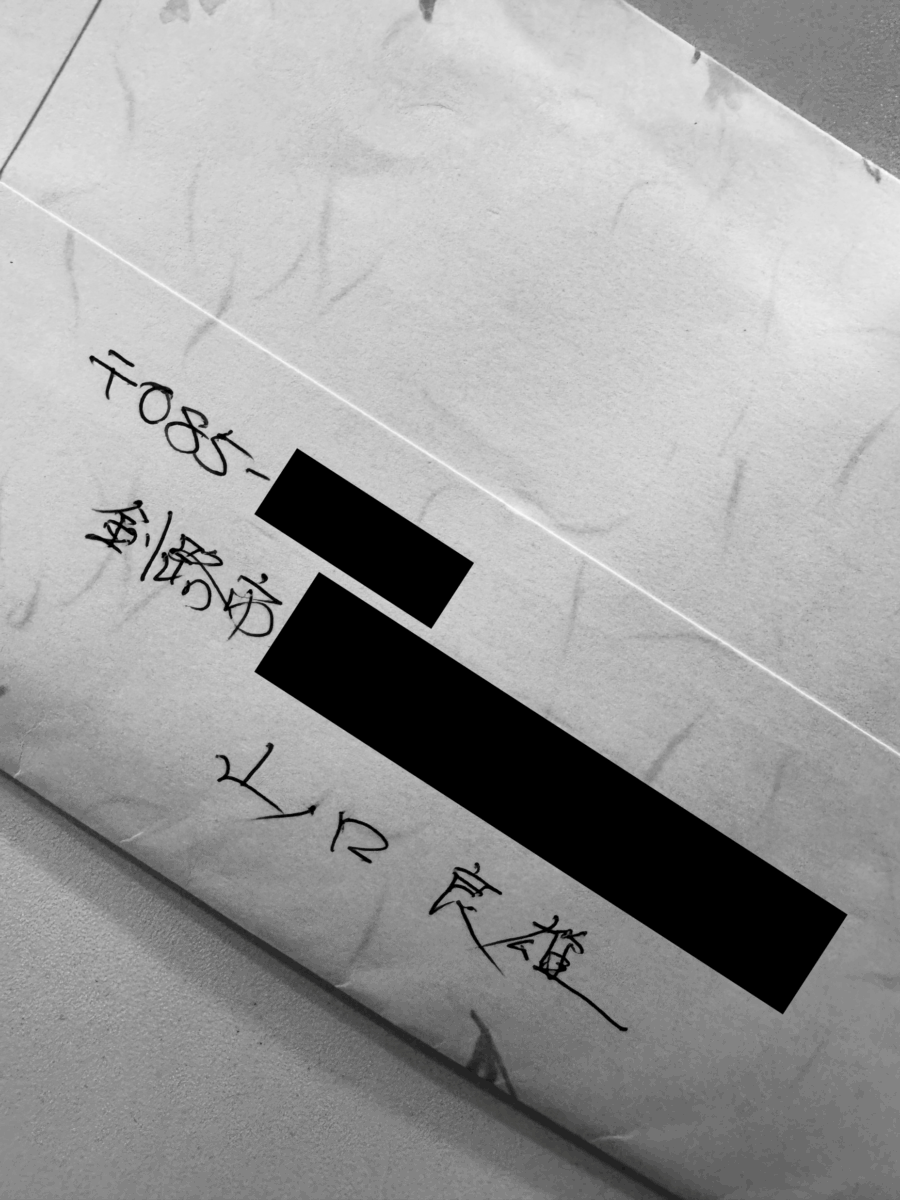 〒085-
釧路市
山口 良雄